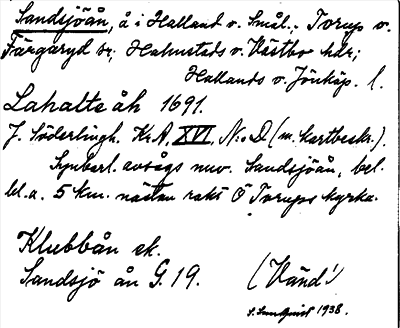 Sandsjöån, å i Halland o. Smål.; Torup o.
Färgaryd sr; Halmstads o. Västbo hdr;
Hallands o. Jönköp. l.
Lahalte åh 1691.
J. Söderlingh. Kr.A. XVI, N:o D (m. kartbeskr.).
Synbarl. avsågs nuv. Sandsjöån, bel.
bl.a. 5 km. nästan rakt Ö Torups kyrka.
Klubbån ek.
Sandsjö ån G. 19. (Vänd!)
1938.